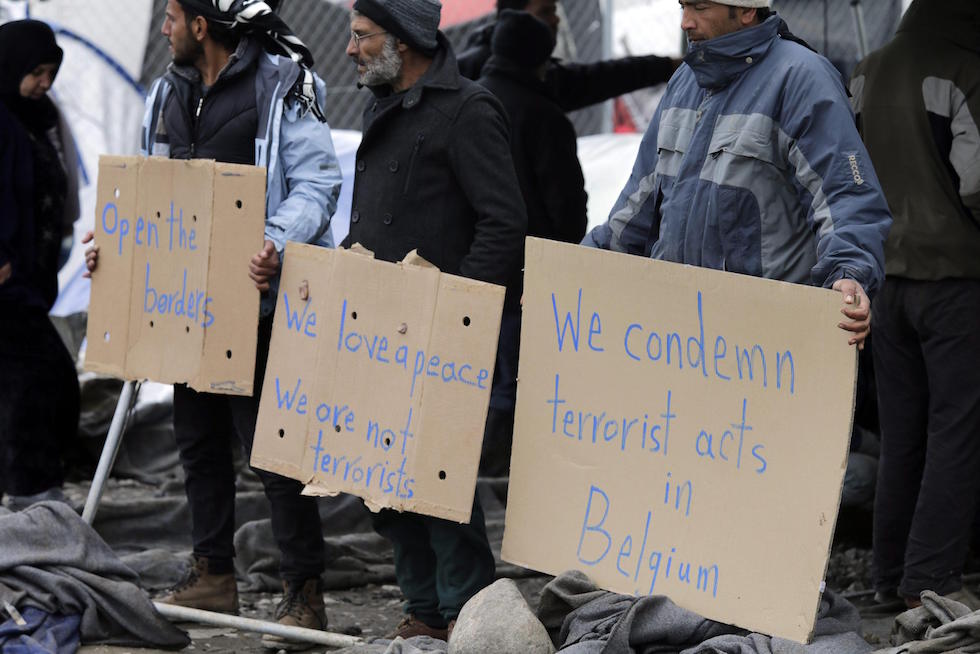 Open the
borders
We love a peace
We are not
terrorists
We condemn
terrorist acts
in
Belgium
RECCO